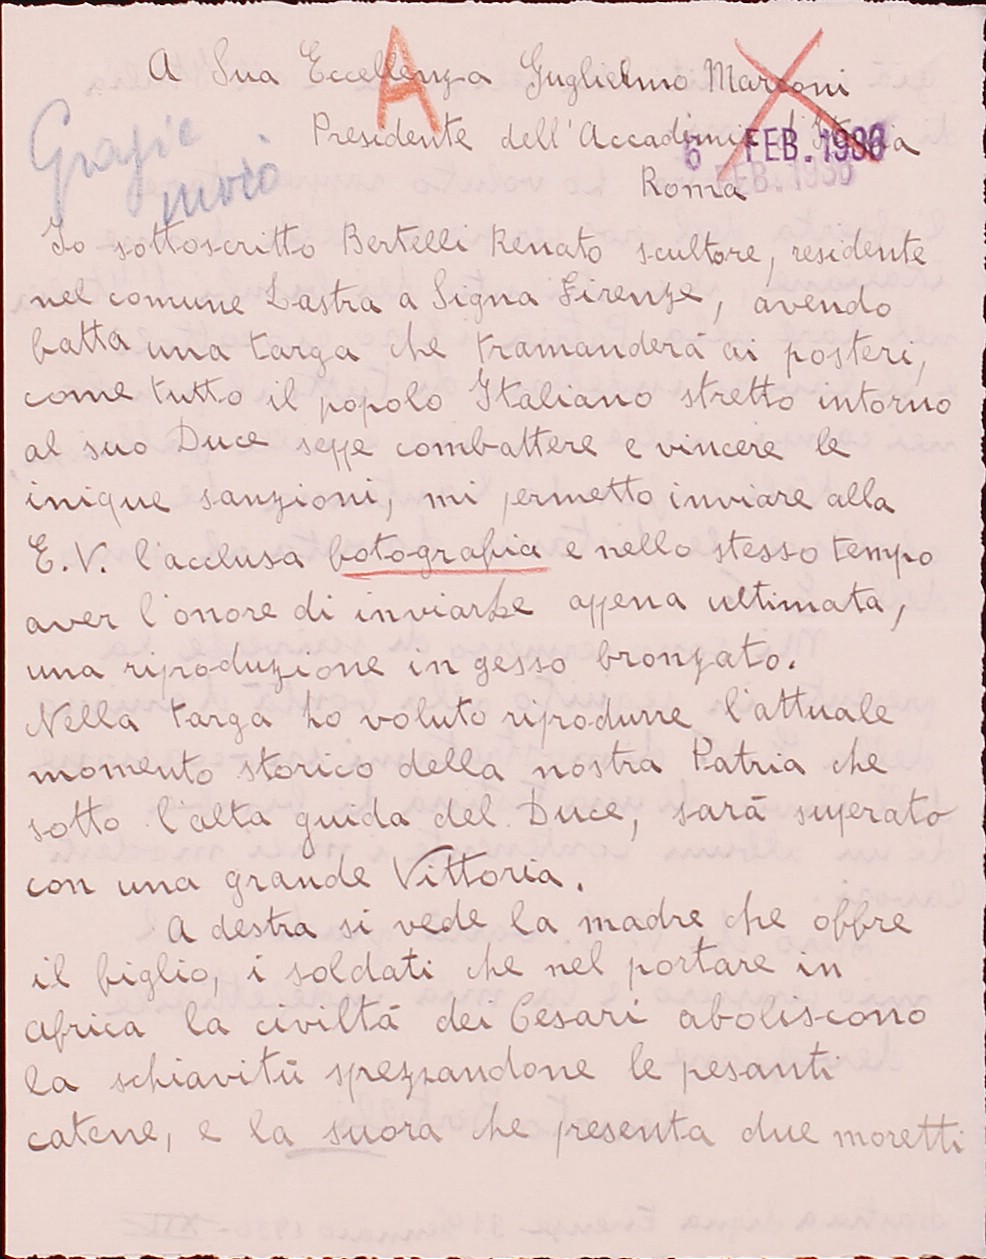 A Sua Eccellenza Guglielmo Marconi
A
Presidente dell'Accademia d'Italia
6 FEB. 1936
FEB. 1936
Roma
Grazie
Io sottoscritto Bertelli Renato scultore, residente
nel comune Lastra a Signa Firenze, avendo
fatta una targa che tramanderà ai posteri,
come tutto il popolo Italiano stretto intorno
al suo Duce seppe combattere e vincere le
inique sanzioni, mi permetto inviare alla
E.V. l'acclusa fotografia e nello stesso tempo
aver l'onore di inviarLe appena ultimata,
una riproduzione in gesso bronzato.
Nella targa ho voluto riprodurre l'attuale
momento storico della nostra Patria che
sotto l'alta guida del Duce, sarà superato
con una grande Vittoria.
A destra si vede la madre che offre
il figlio, i soldati che nel portare in
Africa la civiltà dei Cesari aboliscono
la schiavitù spezzandone le pesanti
catene, e la suora che presenta due moretti